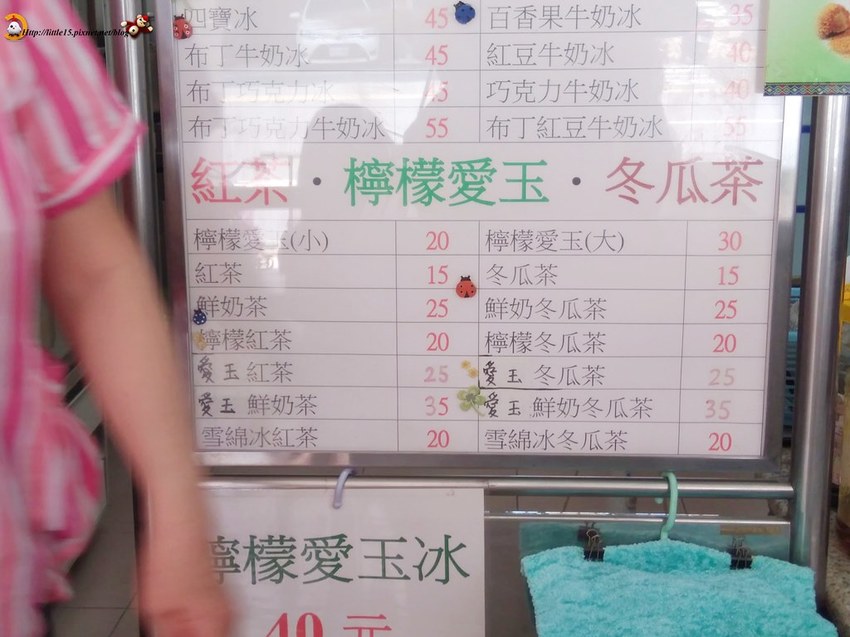 Http://little15.pixnet.net/blog
四寶冰 45 百香果牛奶冰 35
布丁牛奶冰 45 紅豆牛奶冰 40
布丁巧克力冰 45 巧克力牛奶冰 40
布丁巧克力牛奶冰 55 布丁紅豆牛奶冰 55
紅茶・檸檬愛玉・冬瓜茶
檸檬愛玉(小) 20 檸檬愛玉(大) 30
紅茶 15 冬瓜茶 15
鮮奶茶 25 鮮奶冬瓜茶 25
檸檬紅茶 20 檸檬冬瓜茶 20
愛玉 紅茶 25 愛玉 冬瓜茶 25
愛玉 鮮奶茶 35 愛玉 鮮奶冬瓜茶 35
雪綿冰紅茶 20 雪綿冰冬瓜茶 20
檸檬愛玉冰
40 元